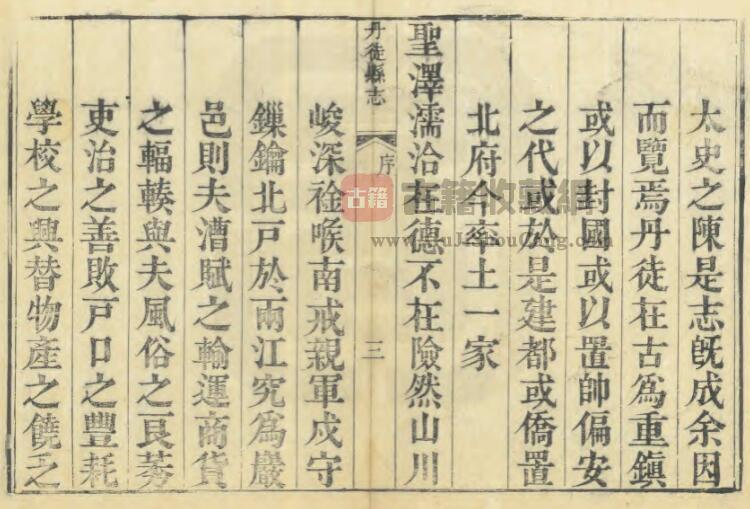 太史之陳是志旣成余因
而覽焉丹徒在古爲重鎭
或以封國或以置帥偏安
之代或於是建都或僑置
北府今率土一家
聖澤濡洽在德不在險然山川
丹徒縣志
序
三
峻深襟喉南戒親軍戍守
鏁鑰北戸於兩江究爲嚴
邑則夫漕賦之輸運商貨
之輻輳與夫風俗之良莠
吏治之善敗戸口之豐耗
學校之興替物產之饒乏
古籍
古籍收藏網